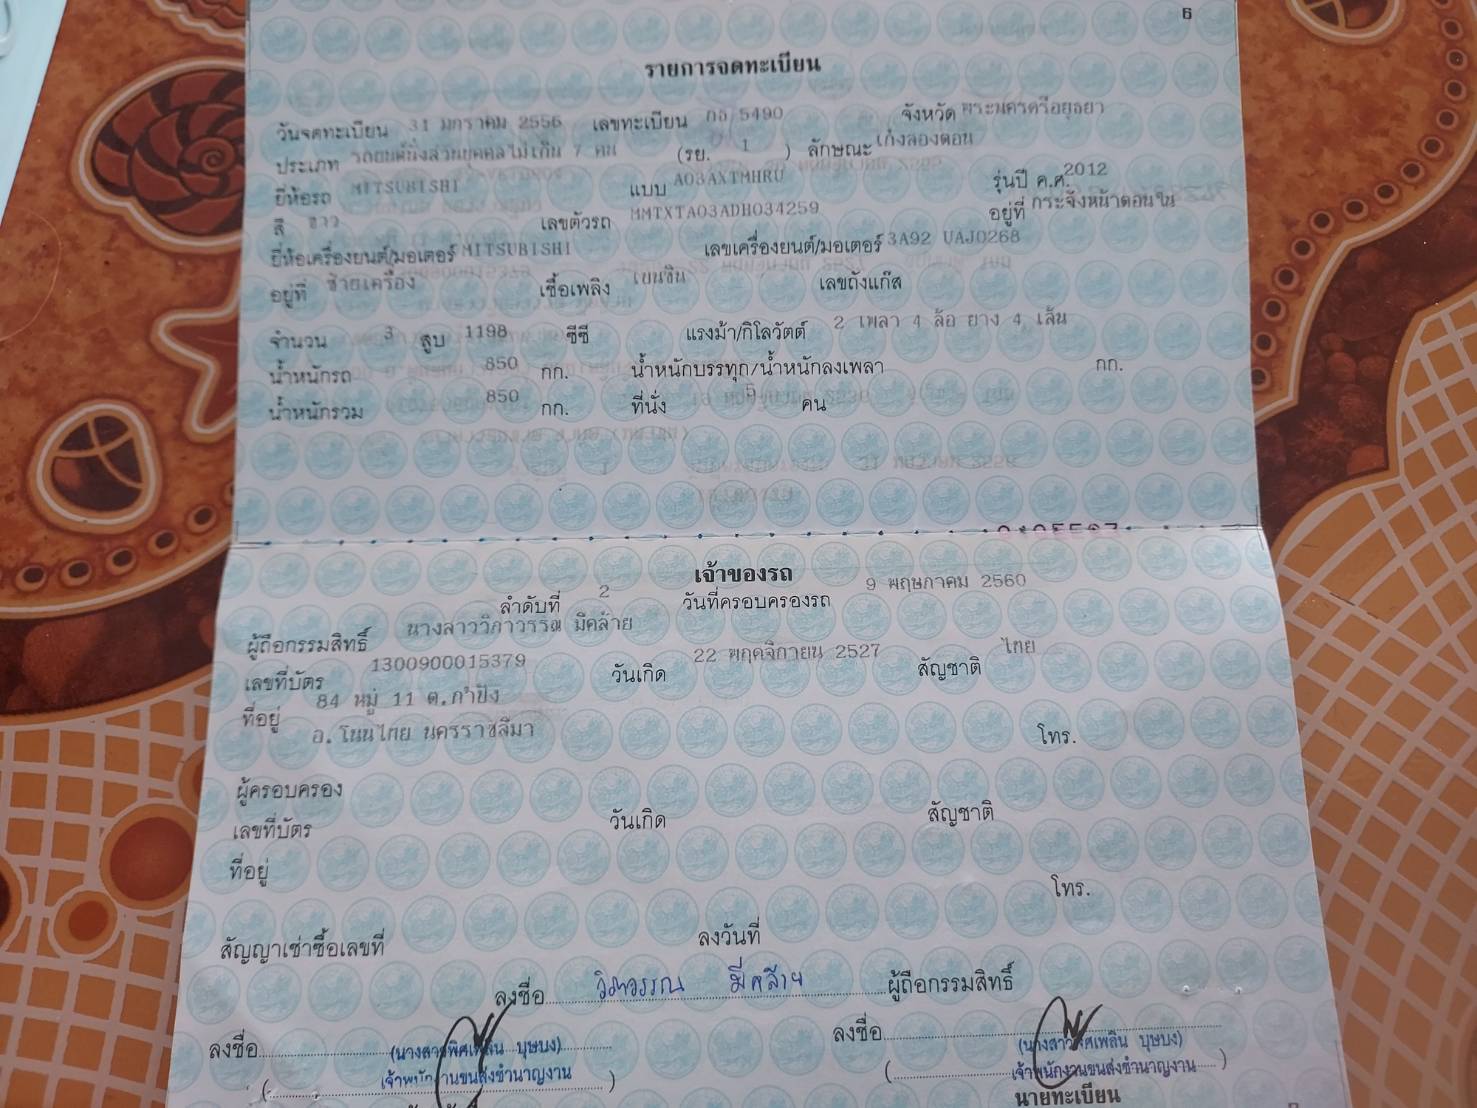 6
รายการจดทะเบียน
วันจดทะเบียน 31 มกราคม 2556 เลขทะเบียน 5490 จังหวัด พระนครศรีอยุธยา
ประเภท รถยนต์นั่งส่วนบุคคลไม่เกิน 7 คน (รย. 1 ) ลักษณะ เก๋งสองตอน
ยี่ห้อรถ MITSUBISHI แบบ A03AXTMHRU รุ่นปี ค.ศ. 2012
สี ขาว เลขตัวรถ MMTXTA03ADH034259 อยู่ที่ กระจังหน้าตอนใน
ยี่ห้อเครื่องยนต์/มอเตอร์ MITSUBISHI เลขเครื่องยนต์/มอเตอร์ 3A92 UAJ0268
อยู่ที่ ซ้ายเครื่อง เชื้อเพลิง เบนซิน เลขถังแก๊ส
จำนวน 3 สูบ 1198 ซีซี แรงม้า/กิโลวัตต์ 2 เพลา 4 ล้อ ยาง 4 เส้น
น้ำหนักรถ 850 กก. น้ำหนักบรรทุก/น้ำหนักลงเพลา กก.
น้ำหนักรวม 850 กก. ที่นั่ง 5 คน
เจ้าของรถ
ลำดับที่ 2 วันที่ครอบครองรถ 9 พฤษภาคม 2560
ผู้ถือกรรมสิทธิ์ นางสาววิภาวรรณ มีคล้าย
เลขที่บัตร 1300900015379 วันเกิด 22 พฤศจิกายน 2527 สัญชาติ ไทย
ที่อยู่ 84 หมู่ 11 ต.กำปัง
อ.โนนไทย นครราชสีมา โทร.
ผู้ครอบครอง
เลขที่บัตร วันเกิด สัญชาติ
ที่อยู่
โทร.
สัญญาเช่าซื้อเลขที่ ลงวันที่
ลงชื่อ วิภาวรรณ มีคล้าย ผู้ถือกรรมสิทธิ์
ลงชื่อ ลงชื่อ
(นางสาวพิศเพลิน บุษบง) (นางสาวพิศเพลิน บุษบง)
( เจ้าพนักงานขนส่งชำนาญงาน ) ( เจ้าพนักงานขนส่งชำนาญงาน )
นายทะเบียน